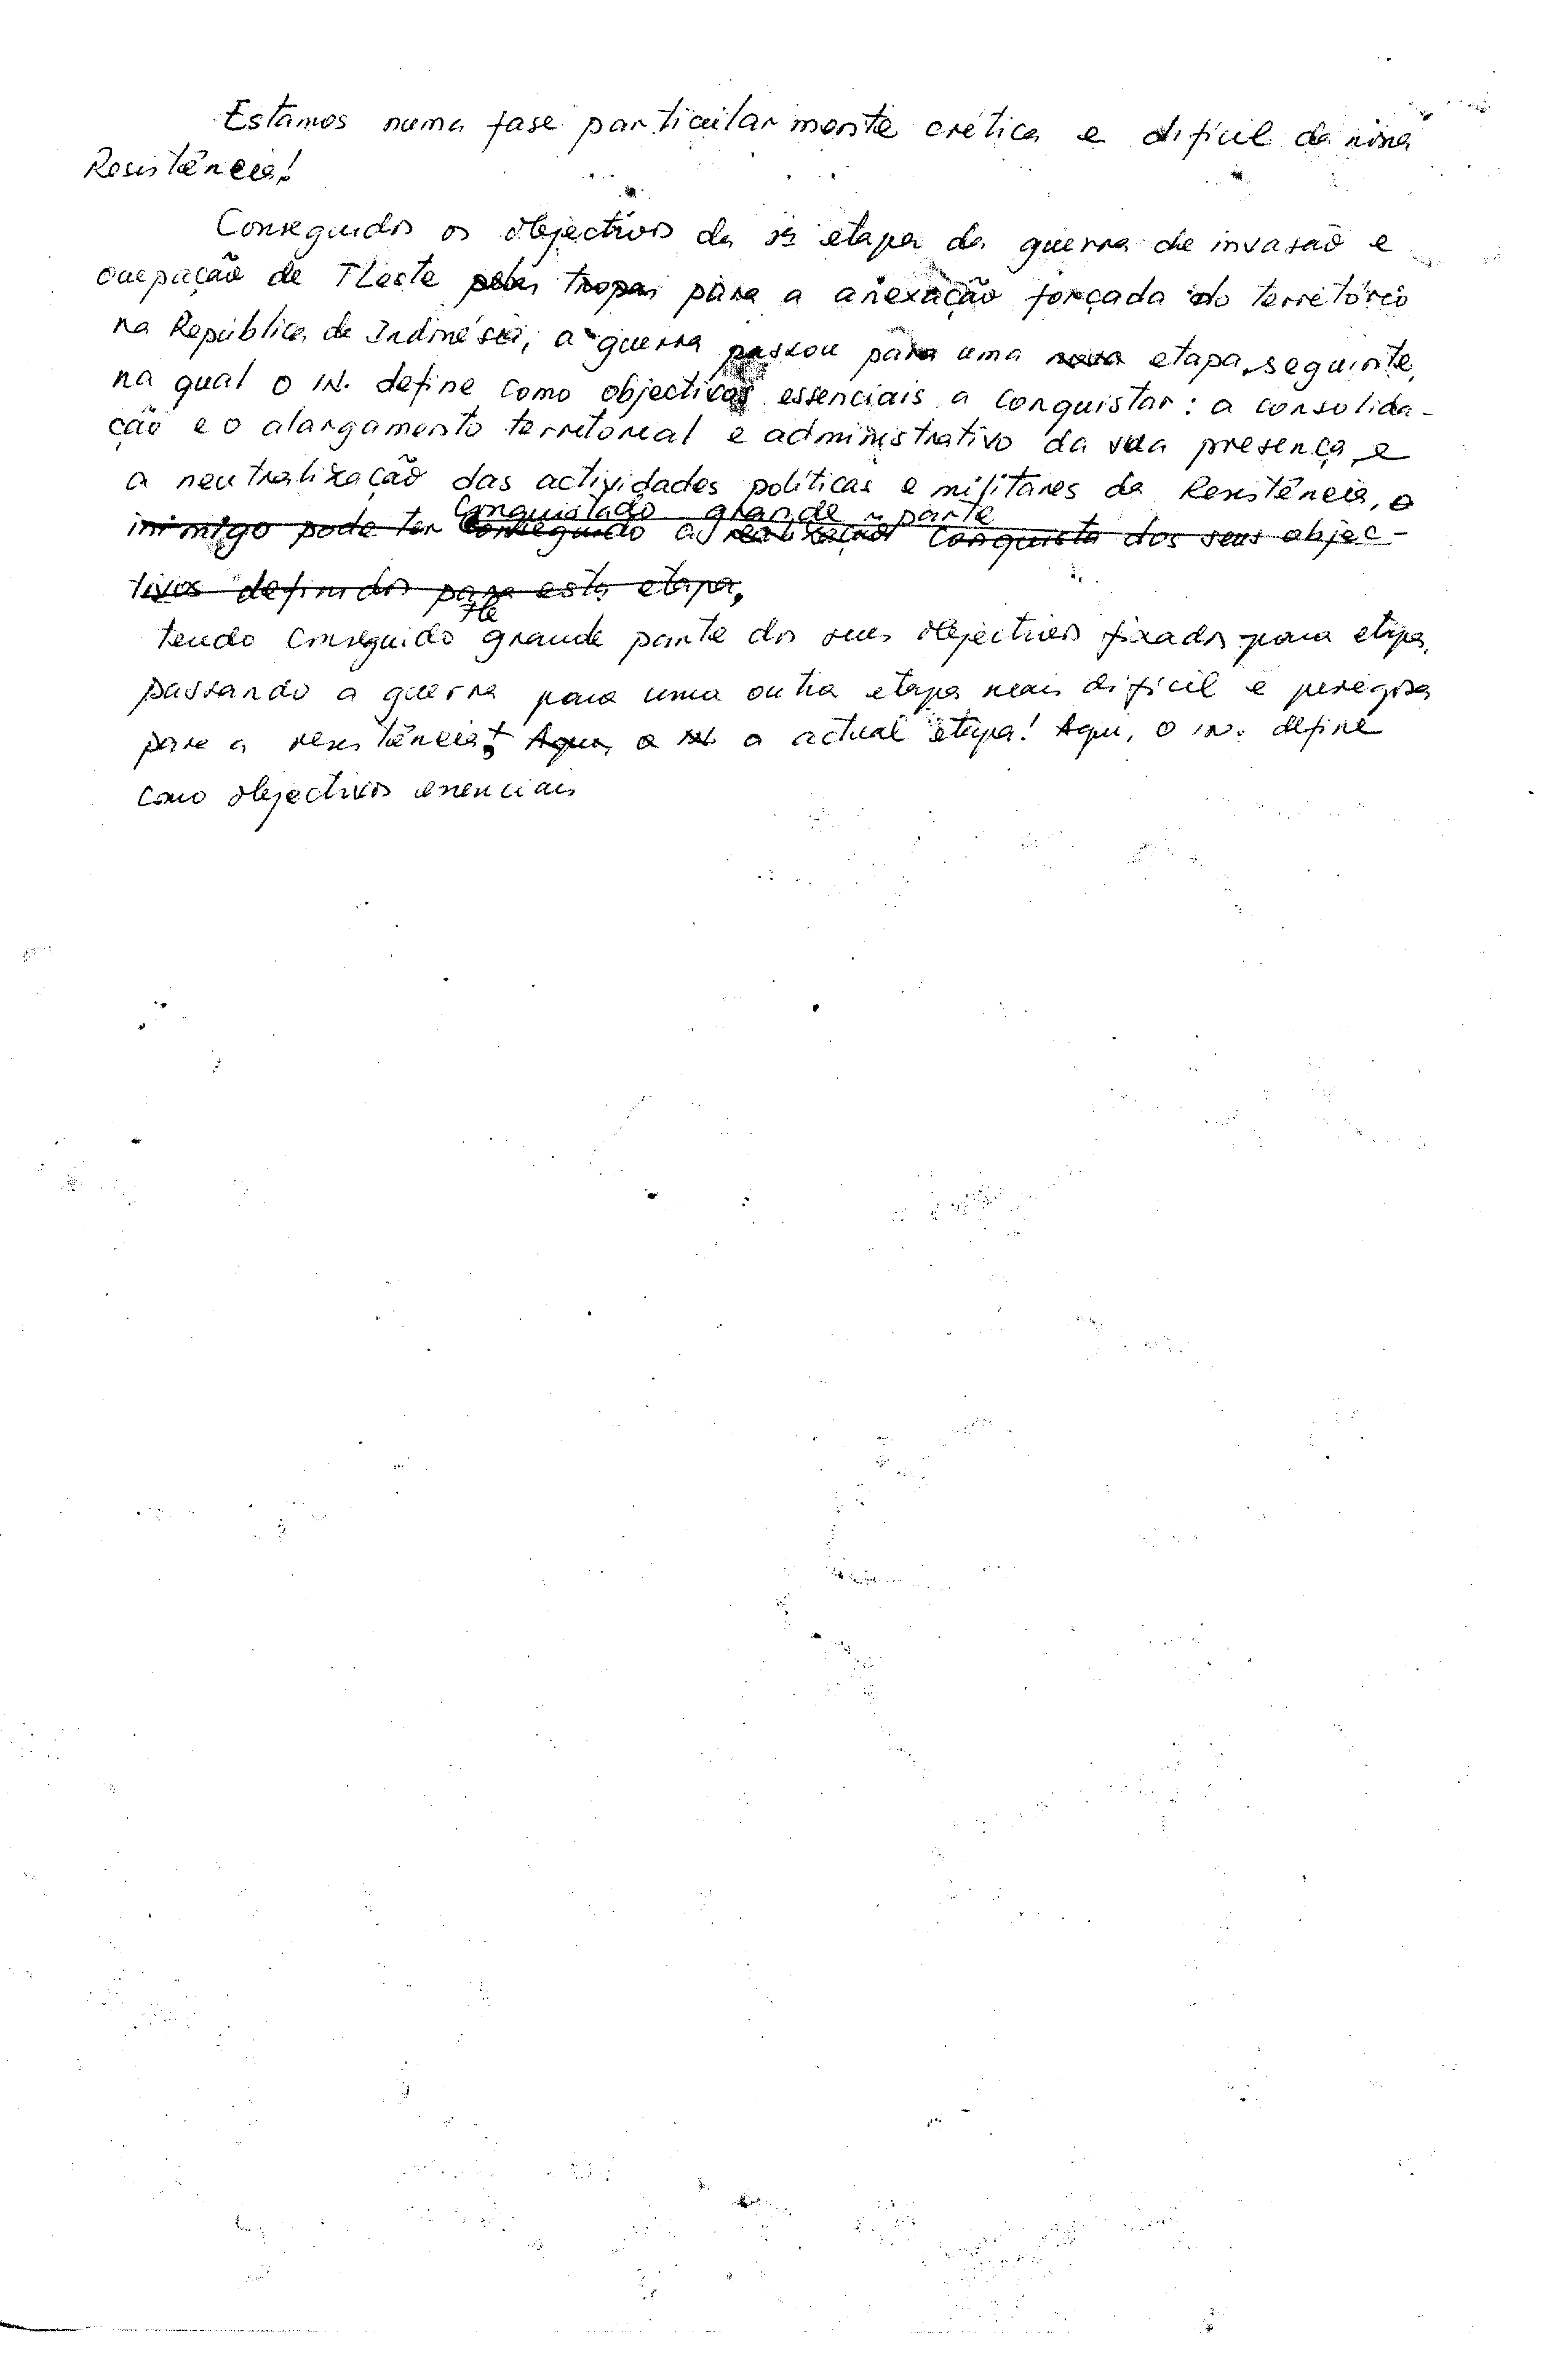 Estamos numa fase particularmente crítica e difícil da nossa
Resistência!
Conseguidos os objectivos da 1ª etapa da guerra de invasão e
ocupação de TLeste pelas tropas para a anexação forçada do território
na República da Indonésia, a guerra passou para uma nova etapa seguinte,
na qual o IN. define como objectivos essenciais a conquistar: a consolida-
ção e o alargamento territorial e administrativo da sua presença e
a neutralização das actividades políticas e militares da Resistência, o
conquistado grande parte
inimigo pode ter conseguido a realização conquista dos seus objec-
tivos definidos para esta etapa,
tendo conseguido grande parte dos seus objectivos fixados para etapa,
passando a guerra para uma outra etapa mais difícil e perigosa
para a resistência: Aqui, o IN. a actual etapa! Aqui, o IN. define
como objectivos essenciais